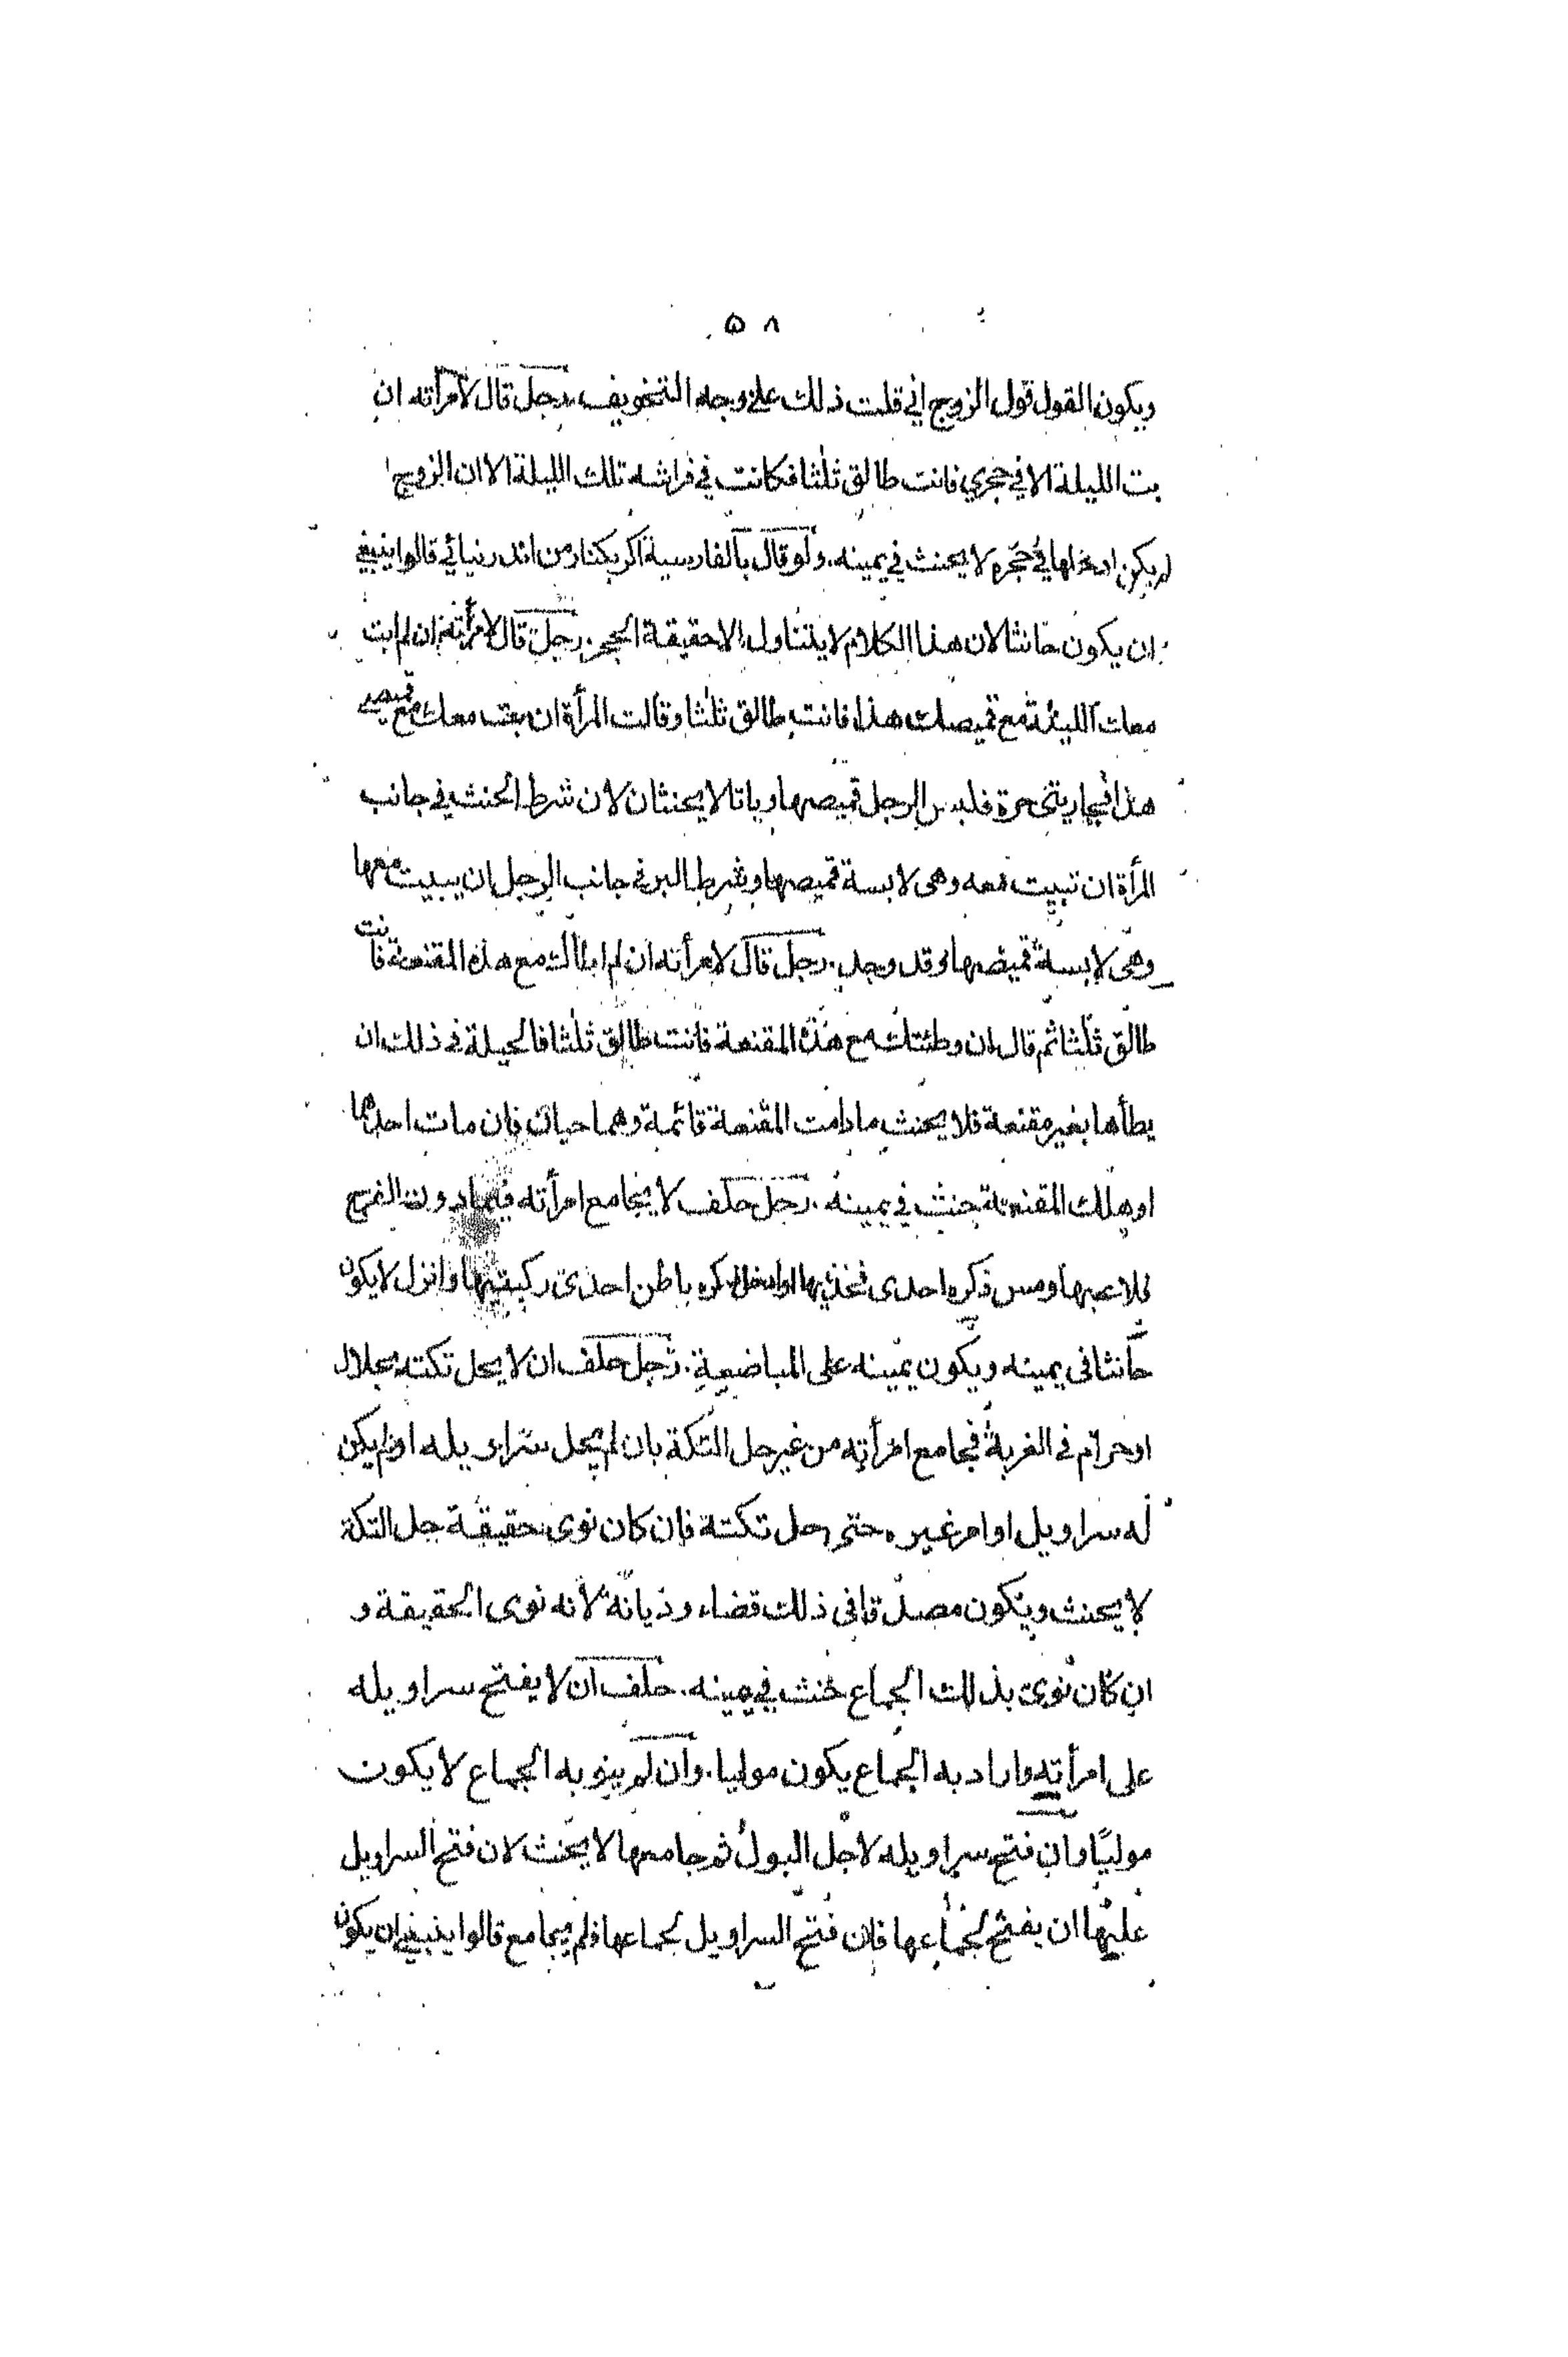 ٥٨
ويكون القول قول الزوج اني قلت ذلك على وجه التخويف، رجل قال لامرأته ان
بت الليلة الا في حجري فانت طالق ثلثا فكانت في فراشه تلك الليلة الا ان الزوج
لم يكن ادخلها في حجره لا يحنث في يمينه. ولو قال بالفارسية اكر بكنار من اندر نيائي قالوا ينبغي
ان يكون حانثا لان هذا الكلام لا يتناول الا حقيقة الحجر. رجل قال لامرأته ان لم ابت
معك الليلة مع قميصك هذا فانت طالق ثلثا وقالت المرأة ان بت معك مع قميصي
هذا فجاريتي حرة فلبس الرجل قميصها وباتا لا يحنثان لان شرط الحنث في جانب
المرأة ان تبيت معه وهى لابسة قميصها وشرط البر في جانب الرجل ان يبيت معها
وهى لابسة قميصها وقد وجد. رجل قال لامرأته ان لم اطأك مع هذه المقنعة فانت
طالق ثلثا ثم قال ان وطئتك مع هذه المقنعة فانت طالق ثلثا فالحيلة في ذلك ان
يطأها بغير مقنعة فلا يحنث ما دامت المقنعة قائمة وهما حيان فان مات احدهما
او هلك المقنعة حنث في يمينه. رجل حلف لا يجامع امرأته فيما دون الفرج
فلاعبها ومس ذكره احدى فخذيها او ادخل ذكره باطن احدى ركبتيها وانزل لا يكون
حانثا فى يمينه ويكون يمينه على المباضعة. رجل حلف ان لا يحل تكته بحلال
او حرام فى الغربة فجامع امرأته من غير حل التكة بان لم يحل سراويله او لم يكن
له سراويل او امر غيره حتى حل تكته فان كان نوى حقيقة حل التكة
لا يحنث ويكون مصدقا فى ذلك قضاء وديانة لانه نوى الحقيقة و
ان كان نوى بذلك الجماع حنث في يمينه. حلف ان لا يفتح سراويله
على امرأته واراد به الجماع يكون موليا. وان لم ينو به الجماع لا يكون
موليا وان فتح سراويله لاجل البول ثم جامعها لا يحنث لان فتح السراويل
عليها ان يفتح لجماعها فان فتح السراويل لجماعها فلم يجامع قالوا ينبغي ان يكون